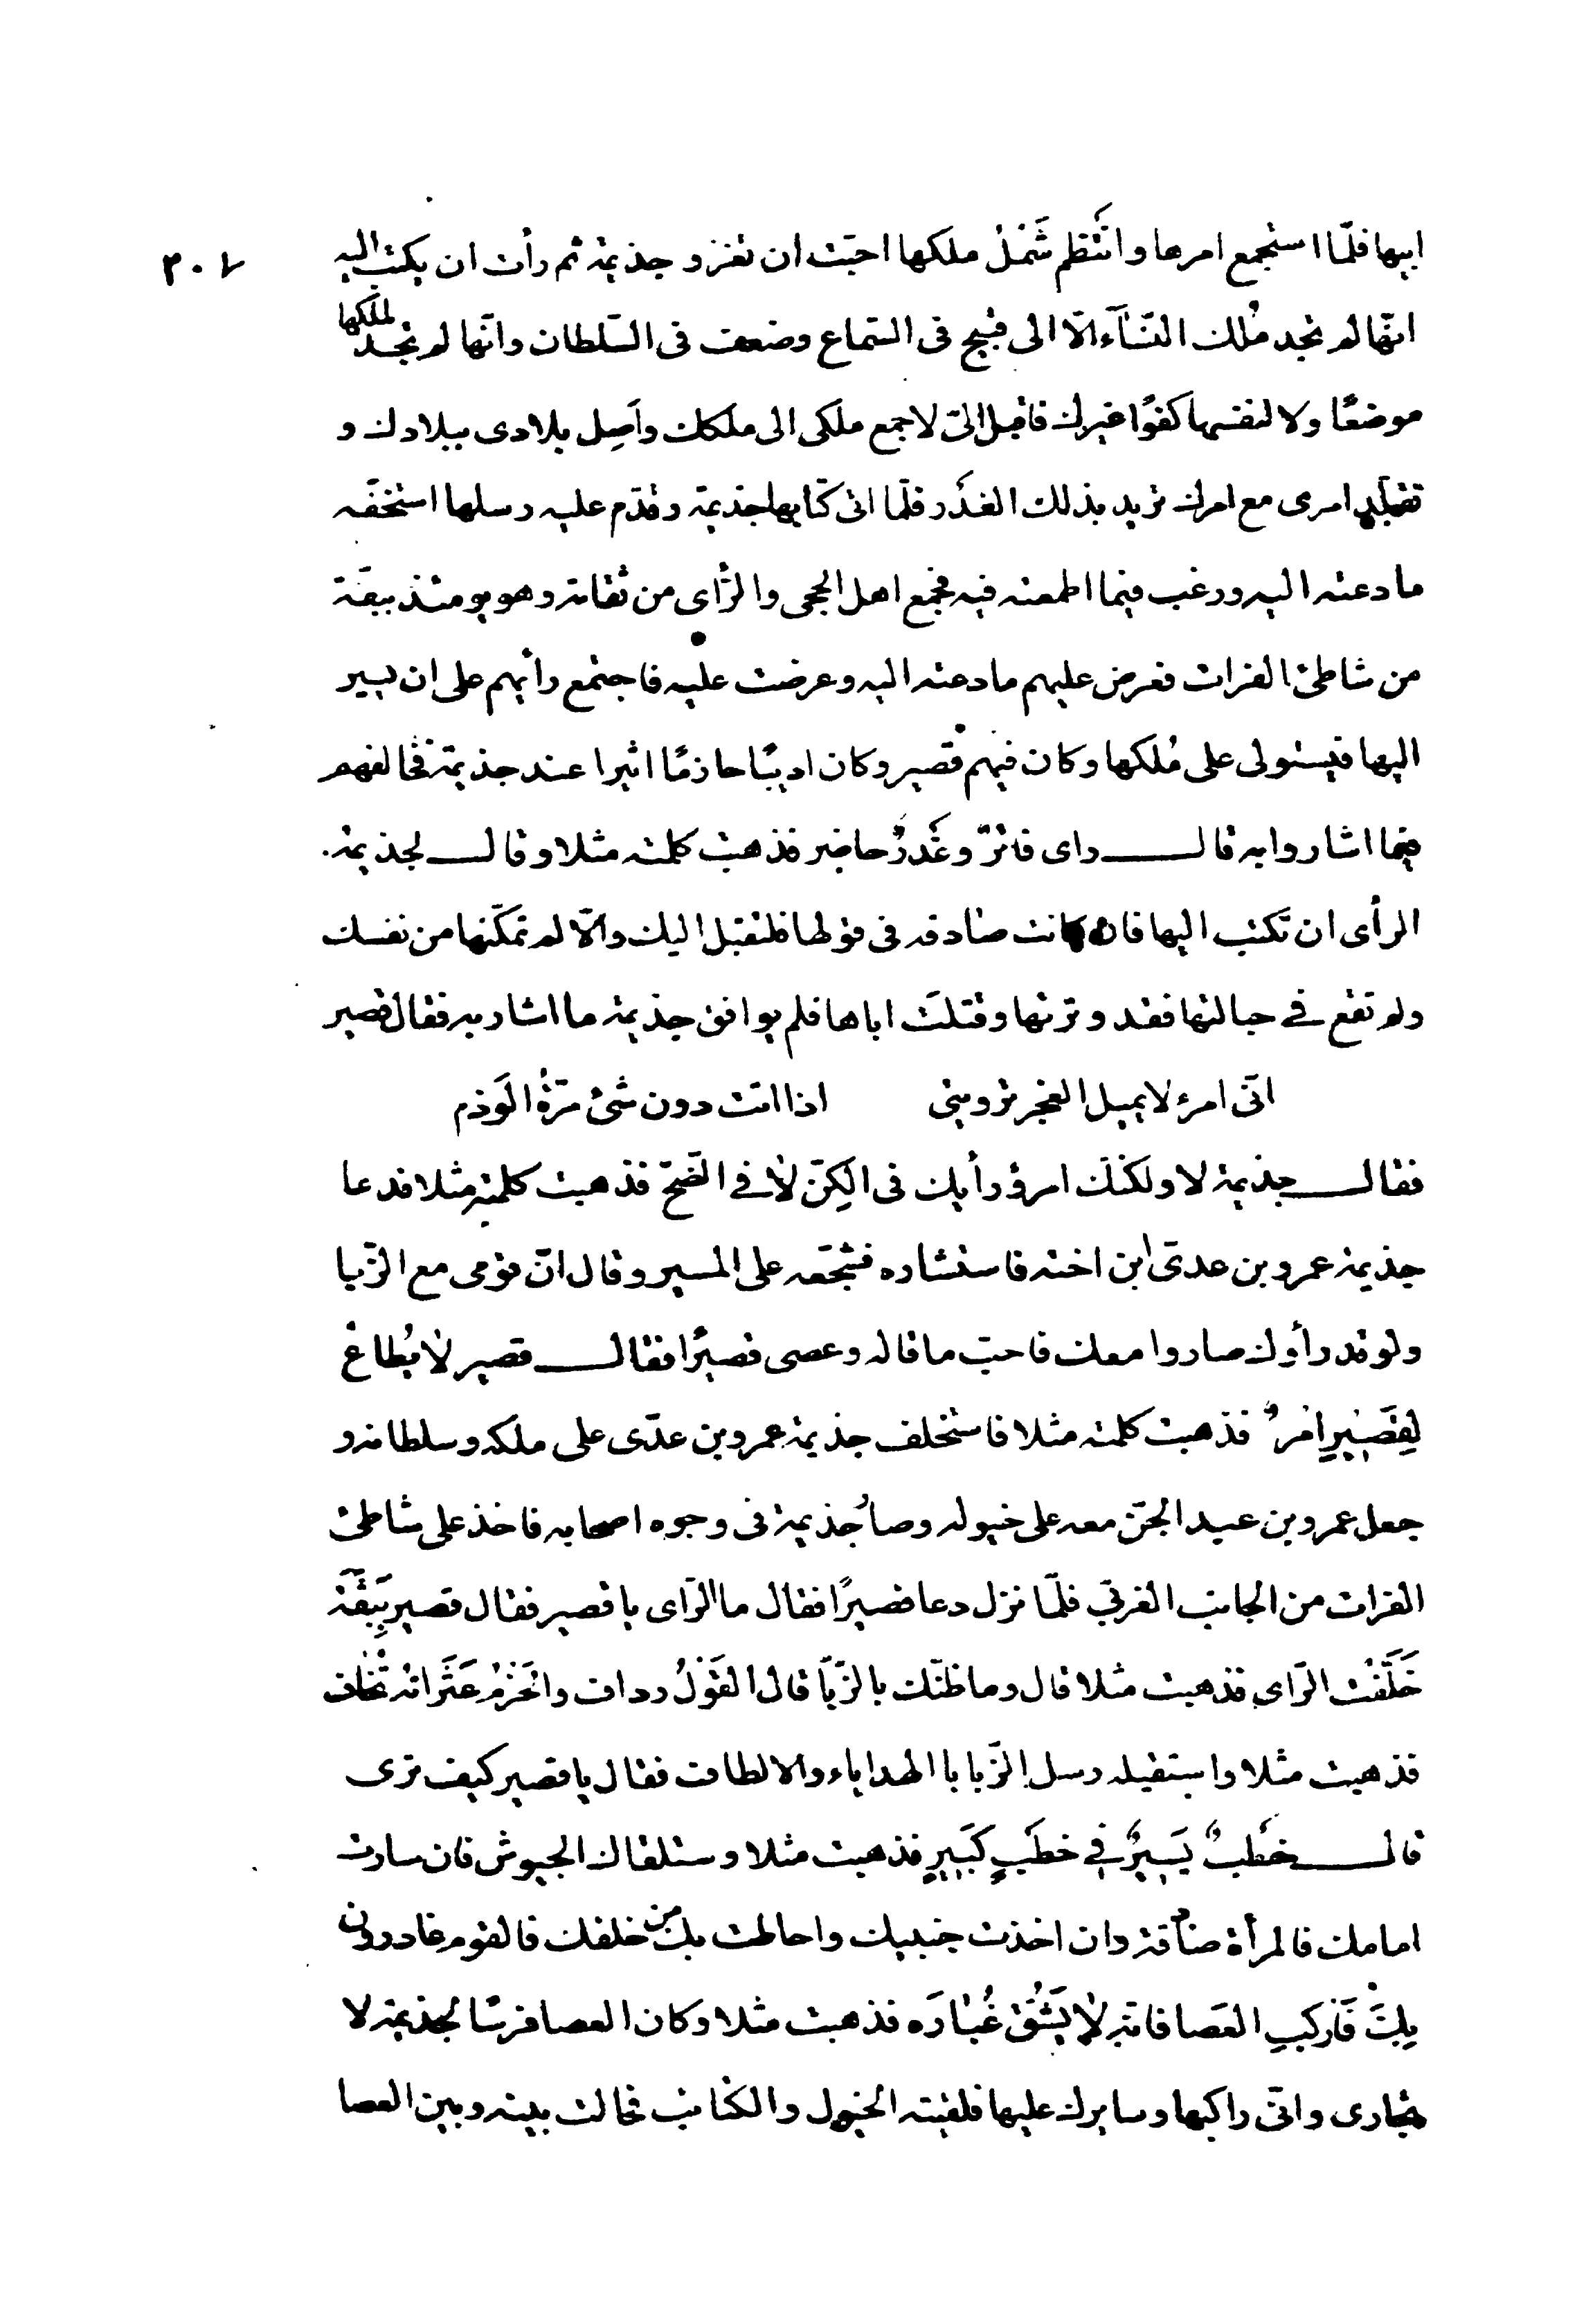 ٣٠٧
ابيها فلمّا استجمع امرها وانتظم شَمْلُ ملكها احبّت ان تغزو جذيمة ثم رأت ان يكتب اليه
انّها لم تجد مُلك النّسآء الّا الى قبيح فى السّماع وضعف فى السّلطان وانّها لم تجد لملكها
موضعًا ولا لنفسها كفوًا غيرك فاقبل الىّ لاجمع ملكى الى ملكك واَصِل بلادى ببلادك و
تقلّد امرى مع امرك تريد بذلك الغَدْر فلمّا اتى كتابها جذيمة وقدّم عليه رسلها استخفّه
ما دعته اليه ورغب فيما اطمعته فيه فجمع اهل الحجى والرّأى من ثقاته وهو يومئذ ببقّة
من شاطئ الفرات فعرض عليهم ما دعته اليه وعرضت عليه فاجتمع رأيهم على ان يسير
اليها فيستولى على مُلكها وكان فيهم قصير وكان اديبًا حازمًا اثيرا عند جذيمة فخالفهم
فيما اشاروا به قال راى فاترٌ وغَدْرٌ حاضر فذهبت كلمته مثلا وقال لجذيمة
الرأى ان تكتب اليها فان كانت صادقه فى قولها فلتقبل اليك والّا لم تمكّنها من نفسك
ولم تقع فى حبالتها فقد وترتها وقتلتَ اباها فلم يوافق جذيمة ما اشار به فقال قصير
انّى امرء لا يميل العجز ترويتى اذا اتت دون شئ مرّةُ الوَذم
فقال جذيمة لا ولكنّك امرؤ رأيك فى الكِنّ لا فى الضّحّ فذهبت كلمته مثلا فدعا
جذيمة عمرو بن عدىّ ابن اخته فاستشاره فشجّعه على المسير وقال انّ قومى مع الزّبا
ولو قد رأوك صاروا معك فاحبّ ما قاله وعصى قصيرًا فقال قصير لا يُطاع
لِقَصيرٍ اَمْرٌ فذهبت كلمته مثلا فاستخلف جذيمة عمرو بن عدّى على ملكه وسلطانه و
جعل عمرو بن عبد الجنّ معه على خيوله وصار جذيمة فى وجوه اصحابه فاخذ على شاطئ
الفرات من الجانب الغربّى فلمّا نزل دعا قصيرًا فقال ما الرّاى يا قصير فقال قصير بِبَقَّةَ
خَلَّفْتَ الرّاى فذهبت مثلا قال وما ظنّك بالزّبّآ قال القَوْلُ رداف والحَزْمُ عَثَراته تُخاف
فذهبت مثلا واستقبله رسل الزّبا با الهداياء والالطاف فقال يا قصير كيف ترى
قال خَطْبٌ يَسيرٌ فى خطبٍ كَبيرٍ فذهبت مثلا وستلقاك الجيوش فان سارت
امامك فالمرأة صادقة وان اخذت جنبيك واحاطت بك من خلفك فالقوم غادرون
بِكَ فَاركبِ العَصا فانّه لا يُشَقّ غُبارَه فذهبت مثلا وكان العصا فرسًا لجذيمة لا
تجارى وانّى راكبها وسايرك عليها فلقيته الخيول والكتائب فحالت بينه وبين العصا